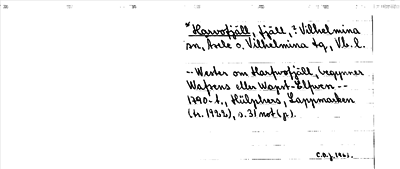 *Harvofjäll, fjäll, ? Vilhelmina
sn, Åsele o. Vilhelmina tg, Vb. l.
-- Wester om Harfvofjäll, begynner
Wapsens eller Wapst-Elfven --
1790-t., Hülphers, Lappmarken
(tr. 1922), s. 31 not (p).
C.B.J. 1961.